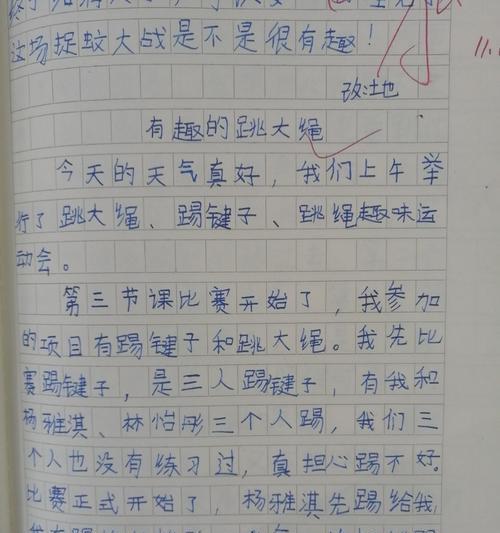 这场捉蚊大战是不是很有趣！
11.
改：地
有趣的跳大绳
今天的天气真好，我们上午举
行了跳大绳、踢键子、跳绳趣味运
动会。
第三节课比赛开始了，我参加
的项目有踢键子和跳大绳。我先比
赛踢键子，是三人踢键子，有我和
杨雅淇、林怡彤三个人踢，我们三
个人也没有练习过，真担心踢不好。
比赛正式开始了，杨雅淇先踢给我，